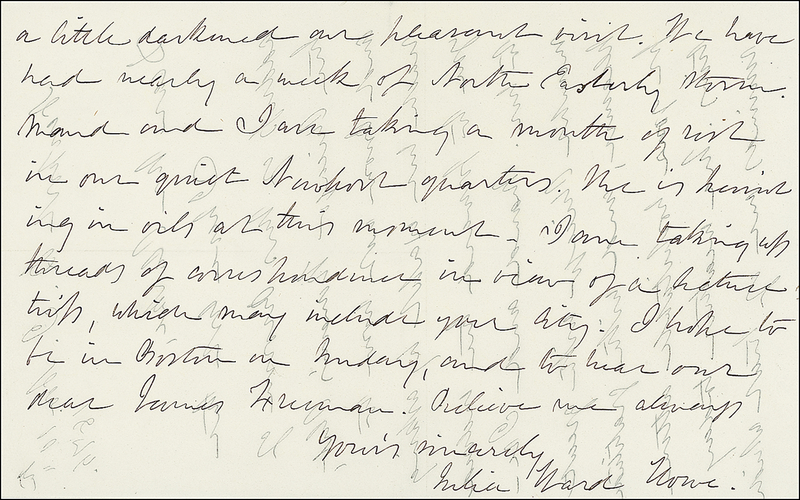 a little darkened our pleasant visit. We have
had nearly a week of North Easterly storm.
Maud and I are taking a month of rest
in our quiet Newport quarters. She is paint
ing in oils at this moment. I am taking up
threads of correspondence in view of a lecture
trip, which may include your city. I hope to
be in Boston on Sunday, and to hear our
dear James Freeman. Believe me always
Yours sincerely
Julia Ward Howe.